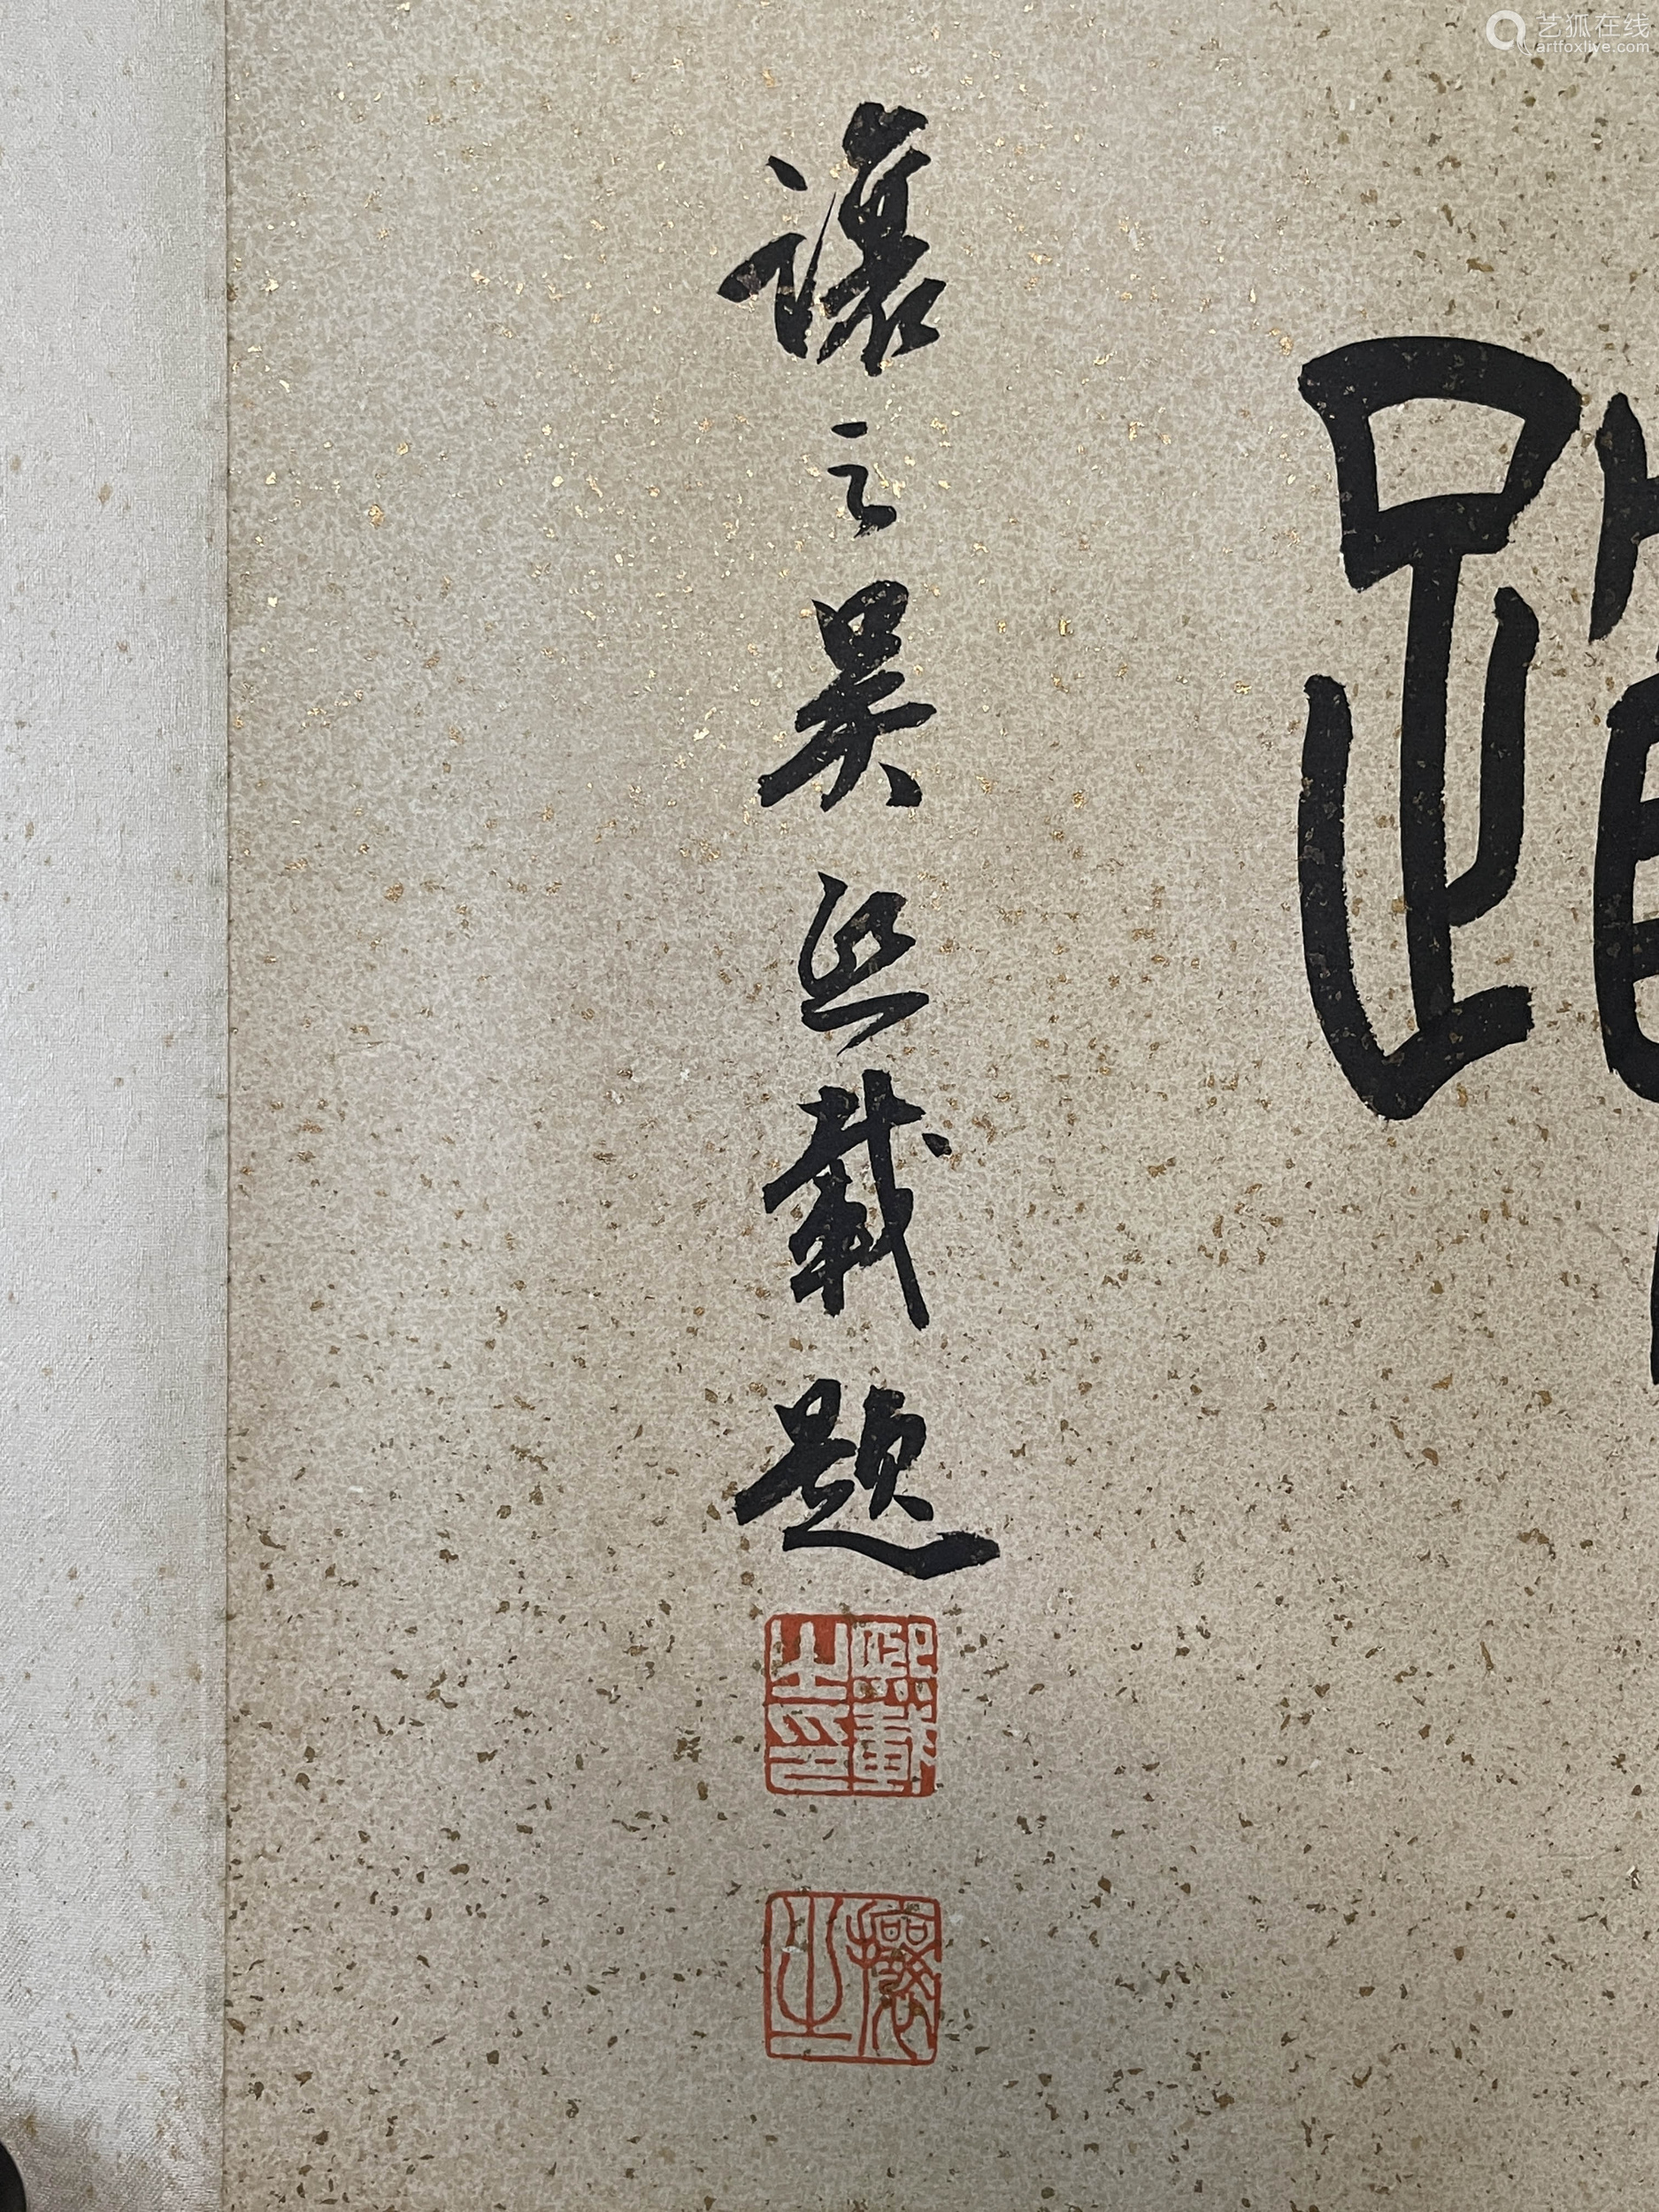 讓之吳熙載題
熙載之印
攘之
艺狐在线
artfoxlive.com